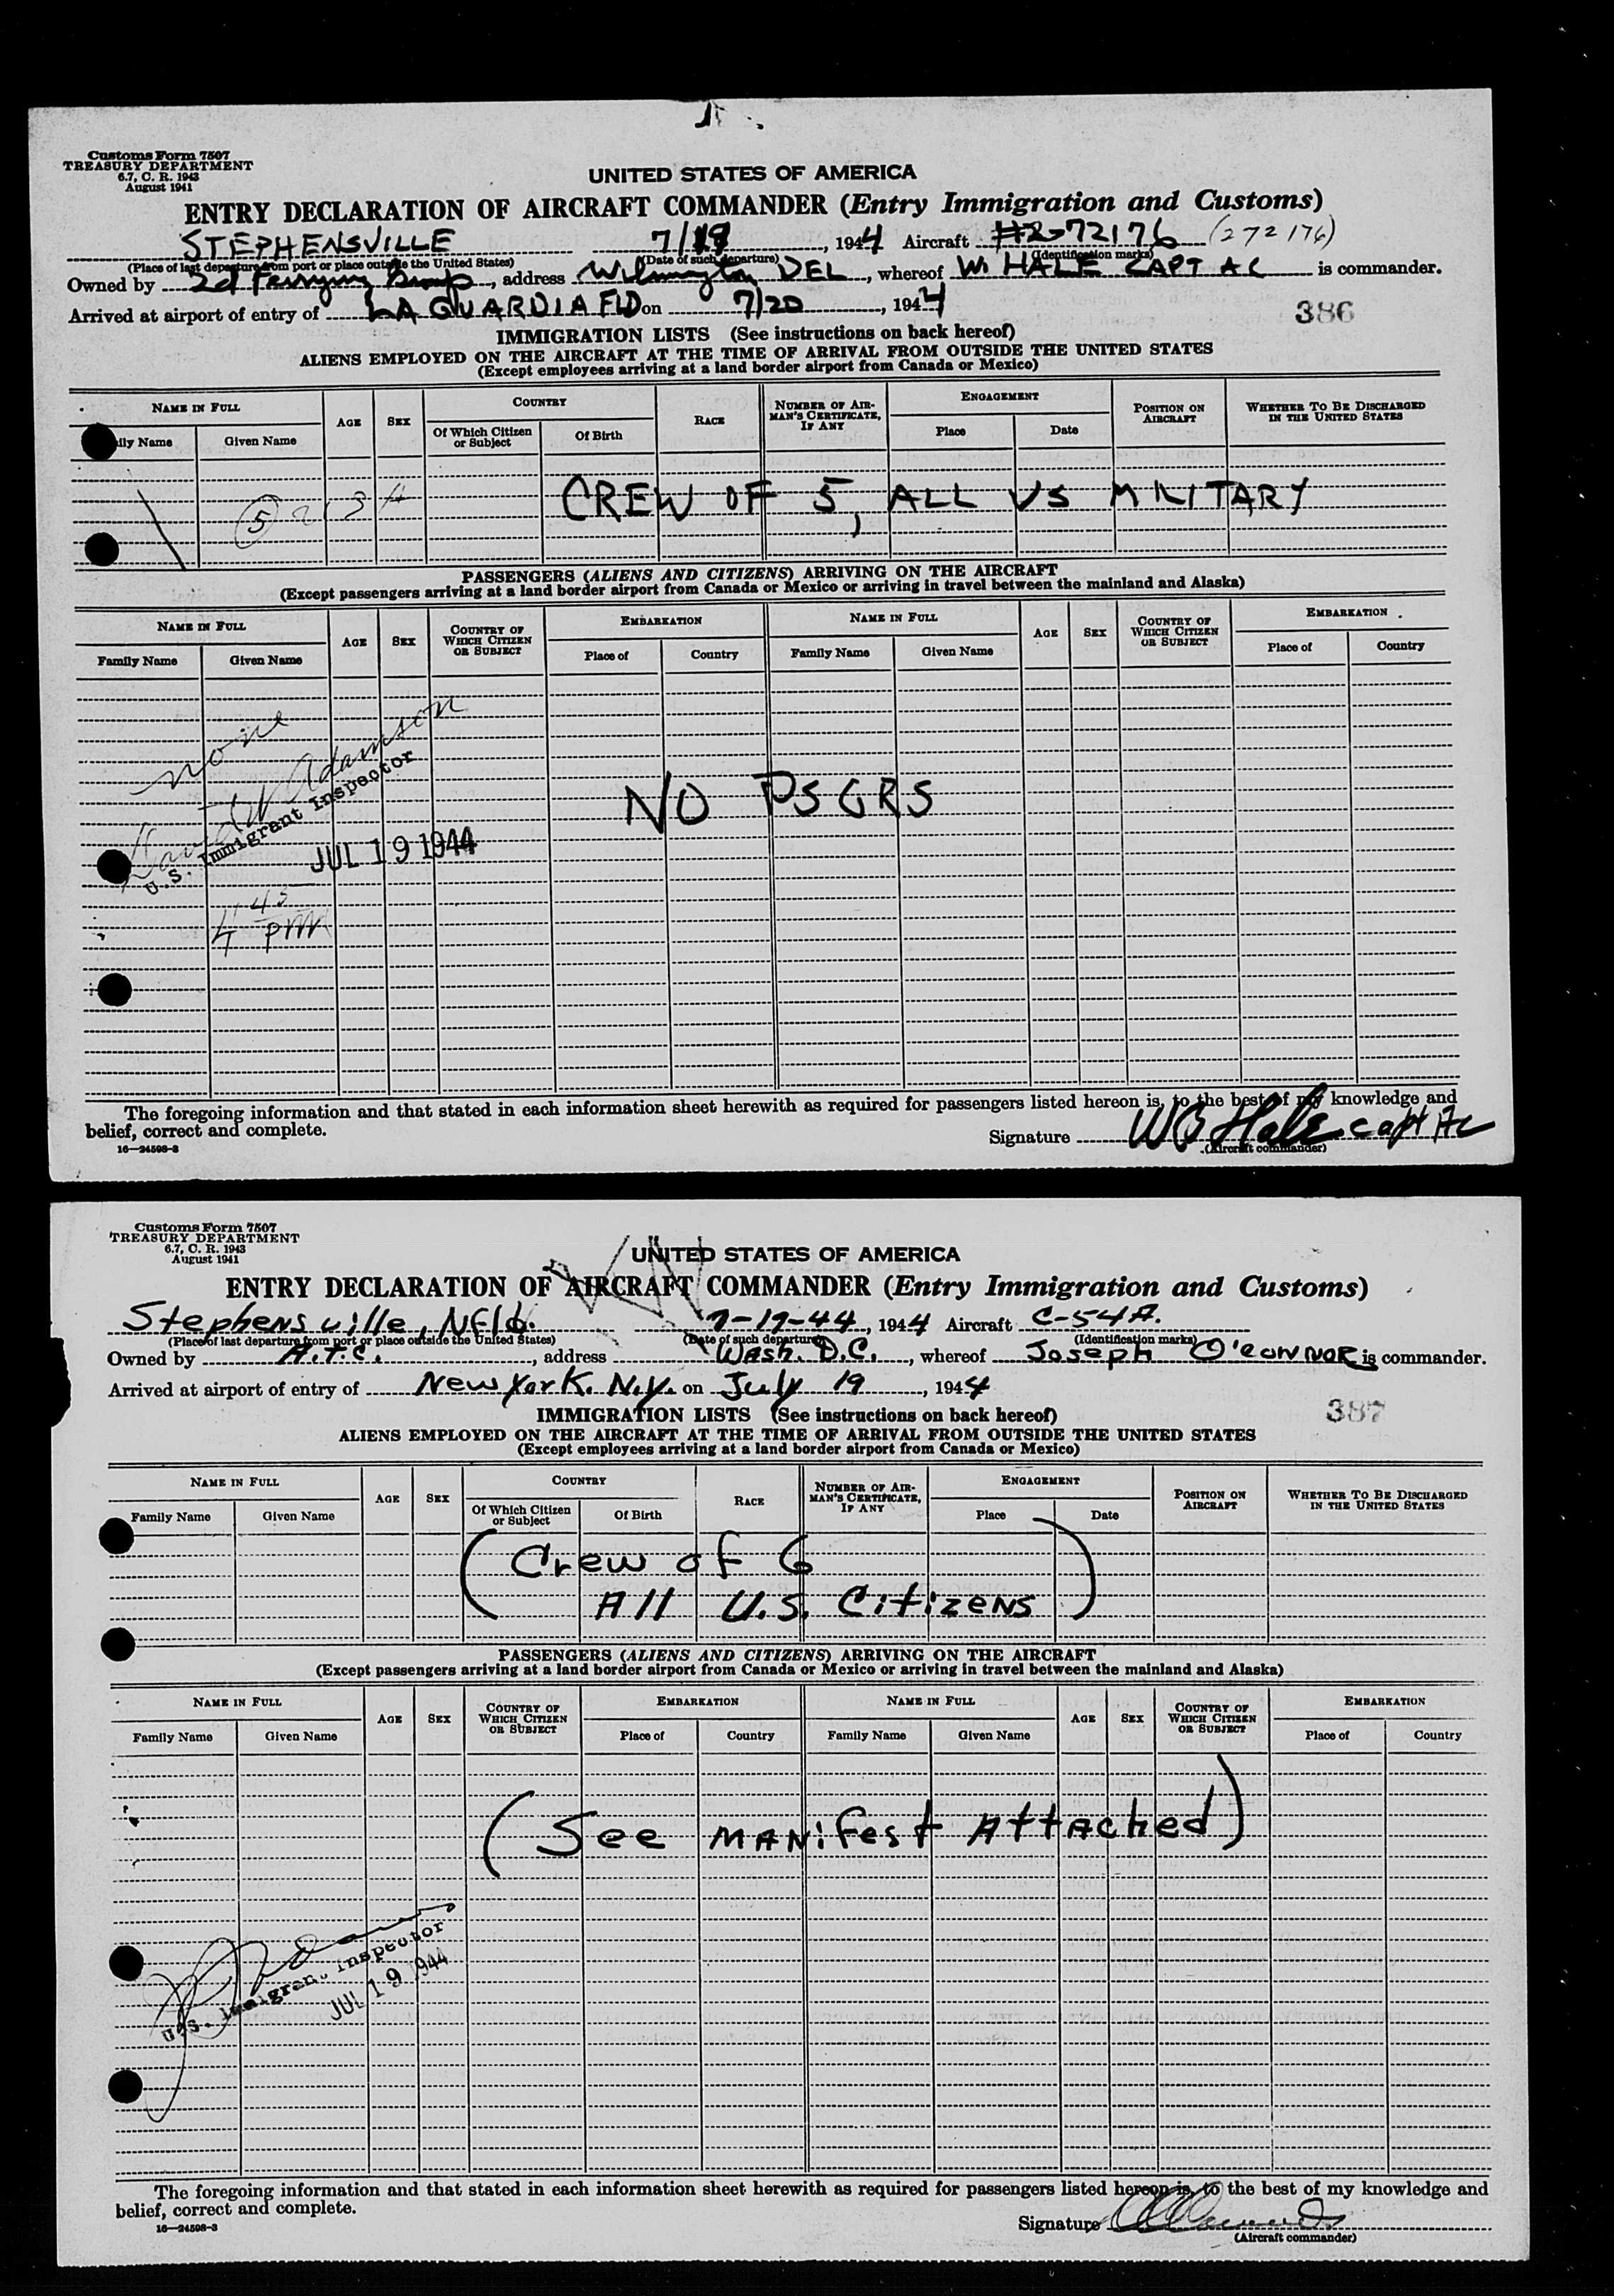 Customs Form 7507
TREASURY DEPARTMENT
6.7, C. R. 1943
August 1941
UNITED STATES OF AMERICA
ENTRY DECLARATION OF AIRCRAFT COMMANDER (Entry Immigration and Customs)
STEPHENSVILLE 7/19, 1944 Aircraft #2-72176 (272176)
(Place of last departure from port or place outside the United States) (Date of such departure) (Identification marks)
Owned by 2d Ferrying Group, address Wilmington DEL, whereof W. HALE CAPT AC is commander.
Arrived at airport of entry of LA GUARDIA FLD on 7/20, 1944
386
IMMIGRATION LISTS (See instructions on back hereof)
ALIENS EMPLOYED ON THE AIRCRAFT AT THE TIME OF ARRIVAL FROM OUTSIDE THE UNITED STATES
(Except employees arriving at a land border airport from Canada or Mexico)
NAME IN FULL AGE SEX COUNTRY RACE NUMBER OF AIRMAN'S CERTIFICATE, IF ANY ENGAGEMENT POSITION ON AIRCRAFT WHETHER TO BE DISCHARGED IN THE UNITED STATES
ily Name Given Name Of Which Citizen or Subject Of Birth Place Date
5 CREW OF 5, ALL US MILITARY
PASSENGERS (ALIENS AND CITIZENS) ARRIVING ON THE AIRCRAFT
(Except passengers arriving at a land border airport from Canada or Mexico or arriving in travel between the mainland and Alaska)
NAME IN FULL AGE SEX COUNTRY OF WHICH CITIZEN OR SUBJECT EMBARKATION NAME IN FULL AGE SEX COUNTRY OF WHICH CITIZEN OR SUBJECT EMBARKATION
Family Name Given Name Place of Country Family Name Given Name Place of Country
none
Adamson
U.S. Immigrant Inspector
NO PSGRS
JUL 19 1944
4 45 pm
The foregoing information and that stated in each information sheet herewith as required for passengers listed hereon is, to the best of my knowledge and
belief, correct and complete.
Signature W B Hale Capt AC
(Aircraft commander)
16—24598-3
Customs Form 7507
TREASURY DEPARTMENT
6.7, C. R. 1943
August 1941
UNITED STATES OF AMERICA
ENTRY DECLARATION OF AIRCRAFT COMMANDER (Entry Immigration and Customs)
Stephensville, NFld. 7-19-44, 1944 Aircraft C-54A.
(Place of last departure from port or place outside the United States) (Date of such departure) (Identification marks)
Owned by A.T.C., address Wash. D.C., whereof Joseph O'CONNOR is commander.
Arrived at airport of entry of New York. N.Y. on July 19, 1944
387
IMMIGRATION LISTS (See instructions on back hereof)
ALIENS EMPLOYED ON THE AIRCRAFT AT THE TIME OF ARRIVAL FROM OUTSIDE THE UNITED STATES
(Except employees arriving at a land border airport from Canada or Mexico)
NAME IN FULL AGE SEX COUNTRY RACE NUMBER OF AIRMAN'S CERTIFICATE, IF ANY ENGAGEMENT POSITION ON AIRCRAFT WHETHER TO BE DISCHARGED IN THE UNITED STATES
Family Name Given Name Of Which Citizen or Subject Of Birth Place Date
(Crew of 6
All U.S. Citizens)
PASSENGERS (ALIENS AND CITIZENS) ARRIVING ON THE AIRCRAFT
(Except passengers arriving at a land border airport from Canada or Mexico or arriving in travel between the mainland and Alaska)
NAME IN FULL AGE SEX COUNTRY OF WHICH CITIZEN OR SUBJECT EMBARKATION NAME IN FULL AGE SEX COUNTRY OF WHICH CITIZEN OR SUBJECT EMBARKATION
Family Name Given Name Place of Country Family Name Given Name Place of Country
(See MANifest AttAched)
U.S. Immigrant Inspector
JUL 19 1944
The foregoing information and that stated in each information sheet herewith as required for passengers listed hereon is, to the best of my knowledge and
belief, correct and complete.
Signature
(Aircraft commander)
16—24598-3